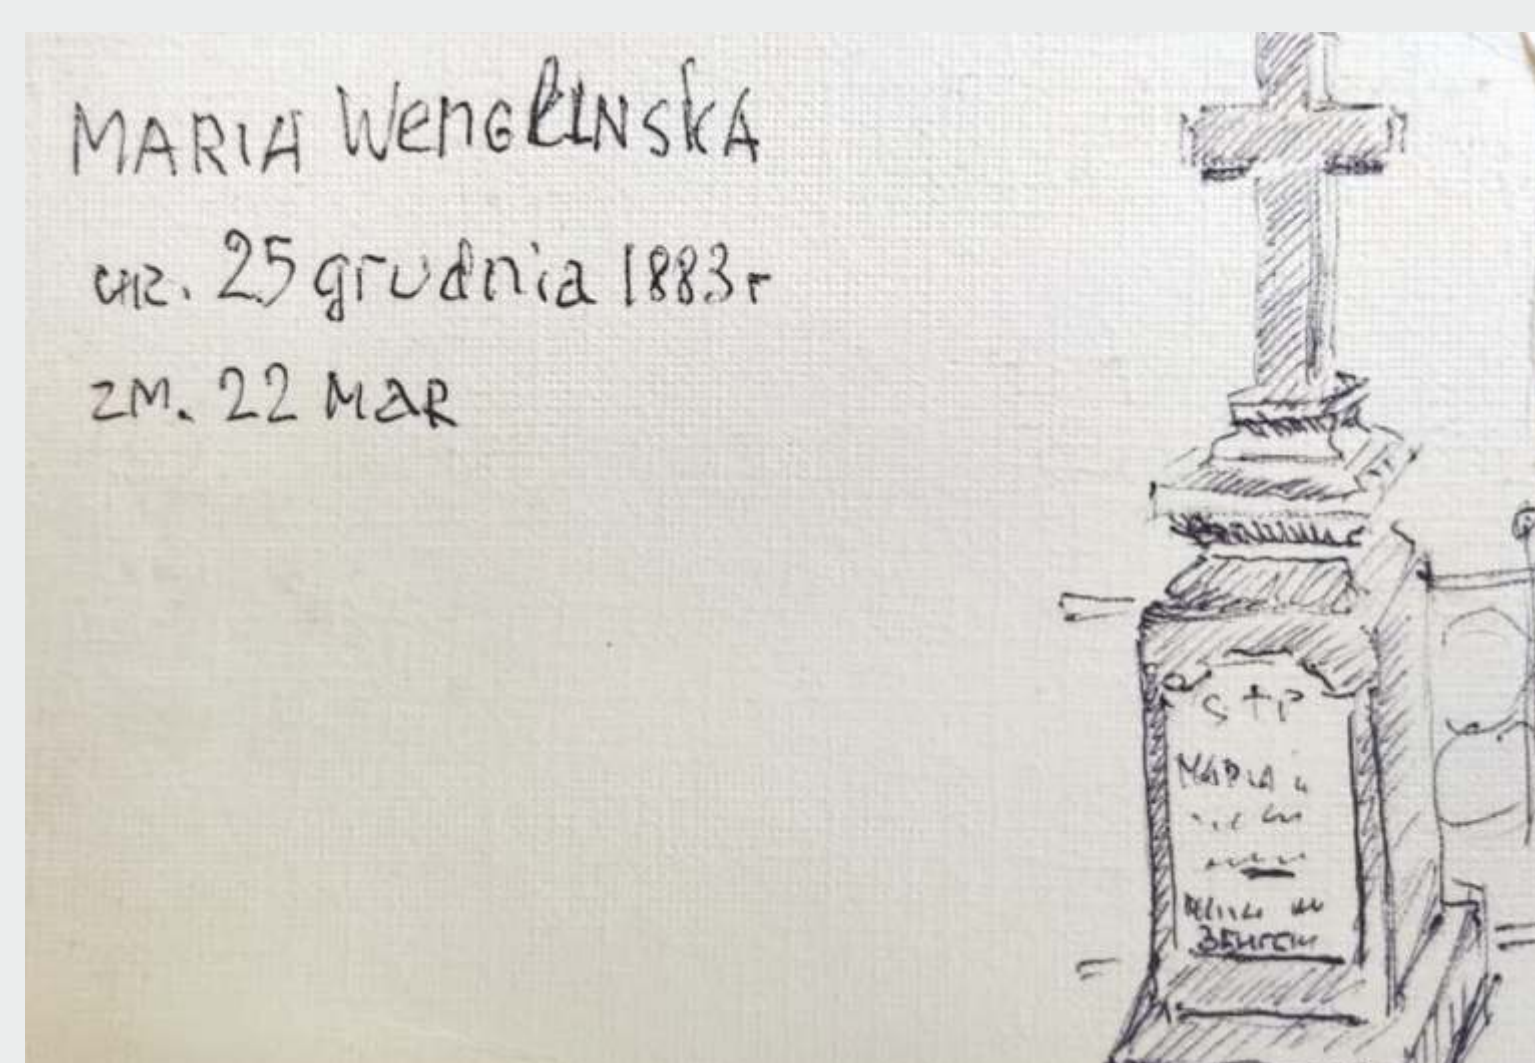 MARIA WENGŁINSKA
ur. 25 grudnia 1883 r
zm. 22 MAR
S † P
MARIA